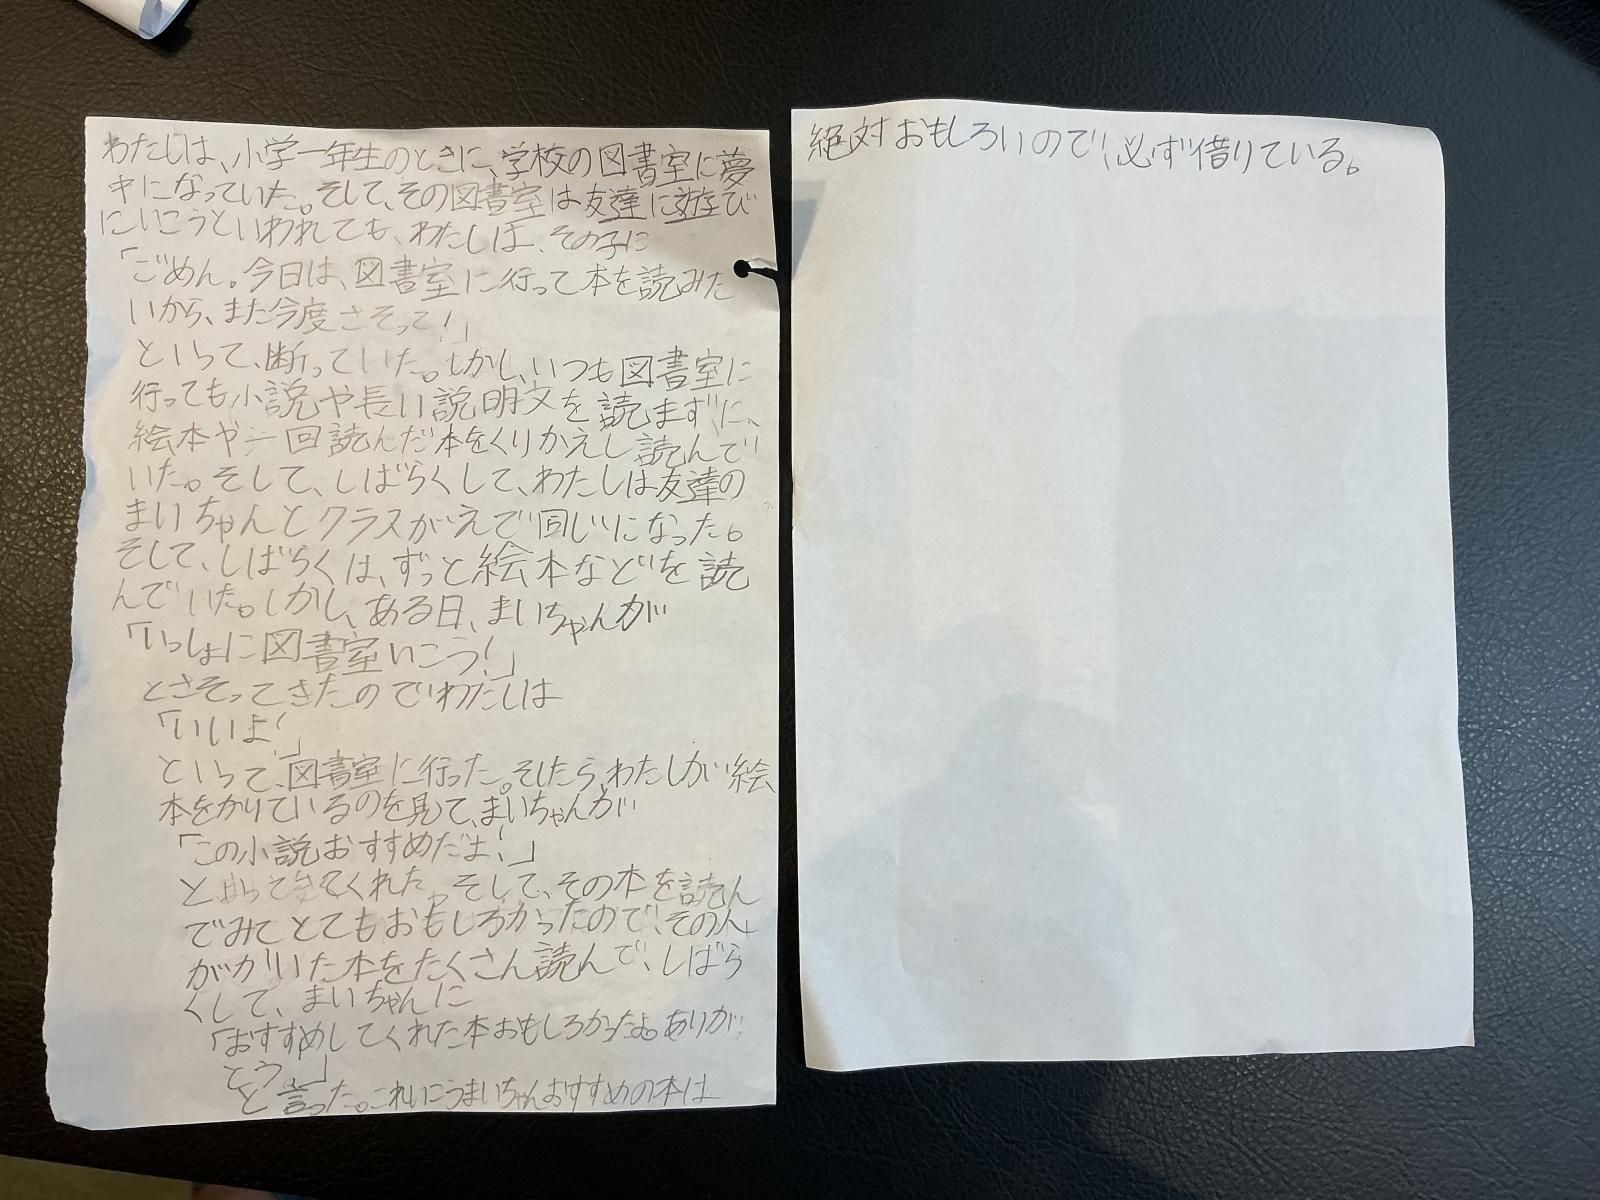 わたしは、小学一年生のときに、学校の図書室に夢
中になっていた。そして、その図書室は友達に遊び
にいこうといわれても、わたしは、その子に
「ごめん。今日は、図書室に行って本を読みた
いから、また今度さそって!」
といって、断っていた。しかし、いつも図書室に
行っても小説や長い説明文を読まずに、
絵本や一回読んだ本をくりかえし読んで
いた。そして、しばらくして、わたしは友達の
まいちゃんとクラスがえで同じになった。
そして、しばらくは、ずっと絵本などを読
んでいた。しかし、ある日、まいちゃんが
「いっしょに図書室いこう!」
とさそってきたのでわたしは
「いいよ!」
といって、図書室に行った。そしたら、わたしがい絵
本をかりているのを見て、まいちゃんが
「この小説おすすめだよ!」
ときてくれた。そして、その本を読ん
でみてとてもおもしろかったので、その人
がかいた本をたくさん読んで、しばら
くして、まいちゃんに
「おすすめしてくれた本おもしろかったよ。ありが
とう。」
と言った。これいこうまいちゃんおすすめの本は
絶対おもしろいので、必ず借りている。